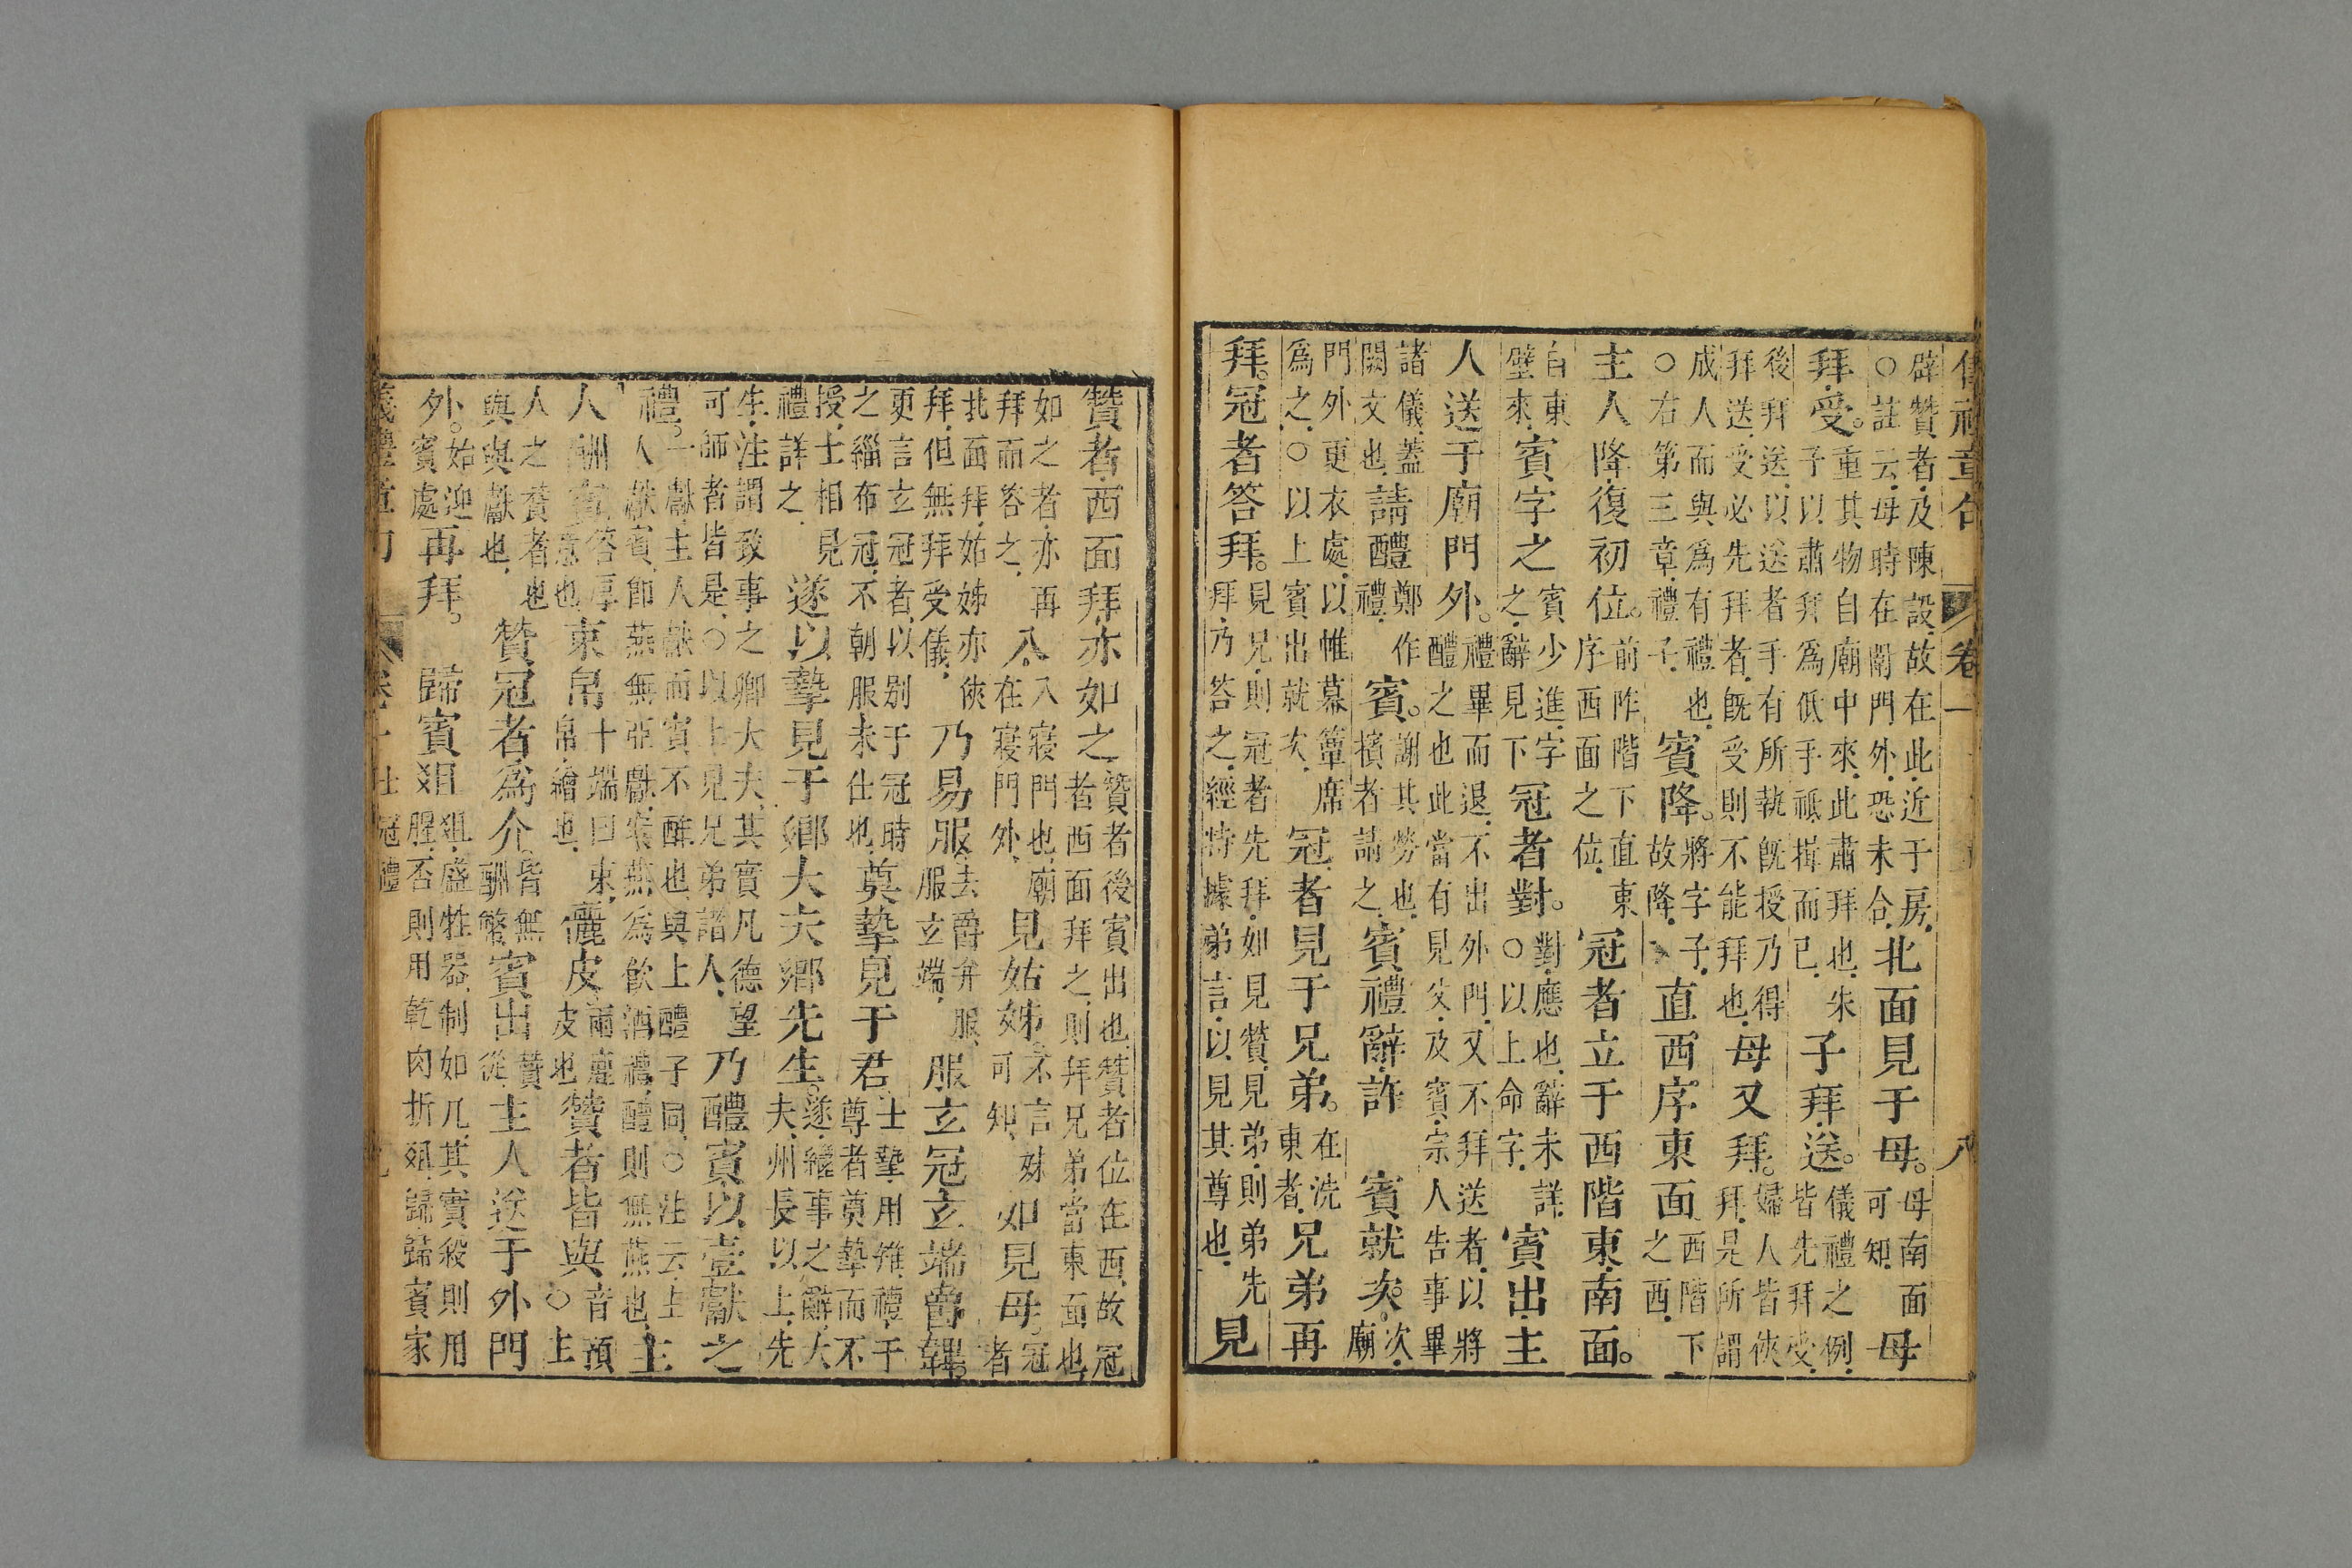 儀禮章句 卷一 八
辟贊者及陳設故在此近于房○註云母時在闈門外恐未合北面見于母。母南面可知母
拜受。重其物自廟中來此肅拜也朱子以肅拜爲低手祇揖而已子拜送。儀禮之例皆先拜受
後拜送以送者手有所執旣授乃得拜送受必先拜者旣受則不能拜也母又拜。婦人皆俠拜是所謂
成人而與爲有禮也○右第三章禮子賓降。將字子故降直西序東面西階下之西
主人降復初位。前阼階下直東序西面之位冠者立于西階東南面。
自東壁來賓字之賓少進字之辭見下冠者對。對應也辭未詳○以上命字賓出主
人送于廟門外。禮畢而退不出外門又不拜送者以將醴之也此當有見父及賓宗人告事畢
諸儀蓋闕文也請醴鄭作禮賓。謝其勞也擯者請之賓禮辭許 賓就次。次廟
門外更衣處以帷幕簟席爲之○以上賓出就次冠者見于兄弟。在洗東者兄弟再
拜。冠者答拜。見兄則冠者先拜如見贊見弟則弟先拜乃答之經特據弟言以見其尊也見
贊者西面拜亦如之贊者後賓出也贊者位在西故冠者西面拜之則拜兄弟當東面也
如之者亦再拜而答之入入寢門也廟在寢門外見姑姊不言妹可知如見母。冠者
北面拜姑姊亦俠拜但無拜受儀乃易服去爵弁服服玄端服玄冠玄端爵韠。
更言玄冠者以别于冠時之緇布冠不朝服未仕也奠摯見于君士摯用雉禮于尊者奠摯而不
授士相見禮詳之遂以摯見于鄉大夫鄉先生。遂繼事之辭大夫州長以上先
生注謂致事之卿大夫其實凡德望可師者皆是○以上見兄弟諸人乃醴賓以壹獻之
禮。一獻主人獻而賓不酢也與上醴子同○注云主人獻賓卽燕無亞獻案燕爲飲酒禮醴則無燕也主
人酬賓答厚意也束帛十端曰束帛繒也儷皮兩鹿皮也贊者皆與音預○主
人之贊者也與與獻也贊冠者爲介皆無酬幣賓出贊從主人送于外門
外。始迎賓處再拜。 歸賓俎俎盛牲器制如几其實殺則用腥否則用乾肉折俎歸歸賓家
儀禮章句 卷一 士冠禮 九